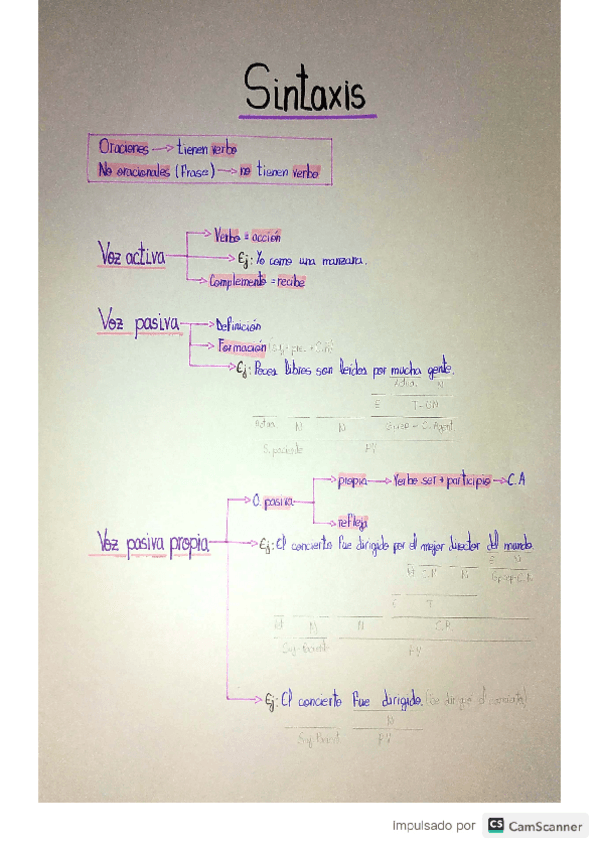 Sintaxis
Oraciones → tienen verbo
No oracionales (Frase) → no tienen verbo
Voz activa
Verbo = acción
Ej: Yo como una manzana.
Complemento = recibe
Voz pasiva
Definición
Formación
Ej: Pocos libros son leídos por mucha gente.
N
E T-CN
N N C. Agent
S. paciente PV
Voz pasiva propia
O. pasiva
propia → Verbo ser + participio → C.A
refleja
Ej: El concierto fue dirigido por el mejor director del mundo.
E N
N
E T
N N
PV
Ej: El concierto fue dirigido.
N
PV
Impulsado por CS CamScanner